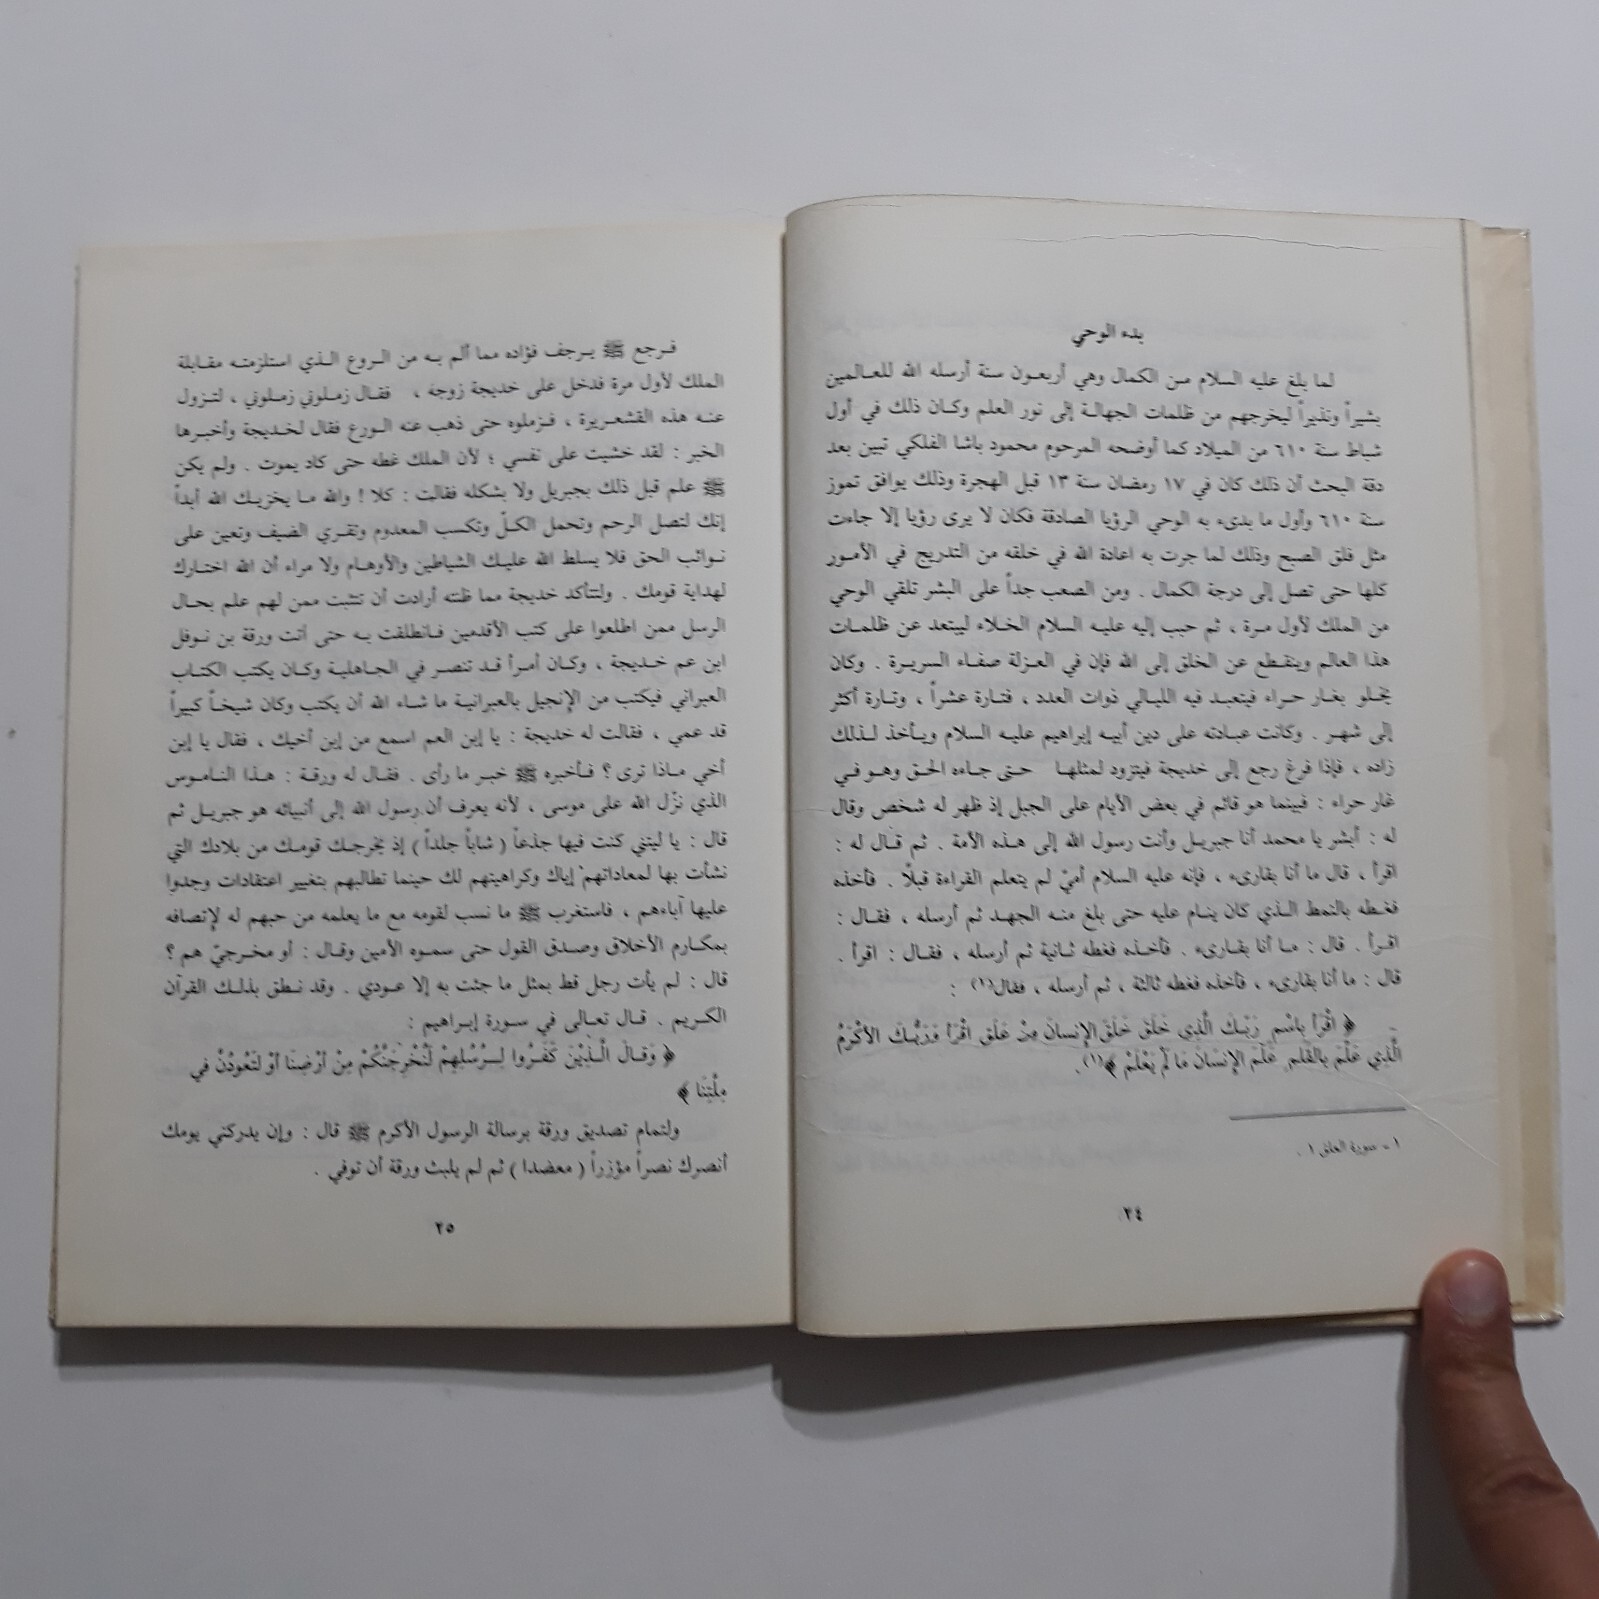 بدء الوحي
لما بلغ عليه السلام من الكمال وهي أربعون سنة أرسله الله للعالمين
بشيراً ونذيراً ليخرجهم من ظلمات الجهالة إلى نور العلم وكان ذلك في أول
شباط سنة ٦١٠ من الميلاد كما أوضحه المرحوم محمود باشا الفلكي تبين بعد
دقة البحث أن ذلك كان في ١٧ رمضان سنة ١٣ قبل الهجرة وذلك يوافق تموز
سنة ٦١٠ وأول ما بدىء به الوحي الرؤيا الصادقة فكان لا يرى رؤيا إلا جاءت
مثل فلق الصبح وذلك لما جرت به اعادة الله في خلقه من التدريج في الأمور
كلها حتى تصل إلى درجة الكمال . ومن الصعب جداً على البشر تلقي الوحي
من الملك لأول مرة ، ثم حبب إليه عليه السلام الخلاء ليبتعد عن ظلمات
هذا العالم وينقطع عن الخلق إلى الله فإن في العزلة صفاء السريرة . وكان
يخلو بغار حراء فيتعبد فيه الليالي ذوات العدد ، فتارة عشراً ، وتارة أكثر
إلى شهر . وكانت عبادته على دين أبيه إبراهيم عليه السلام ويأخذ لذلك
زاده ، فإذا فرغ رجع إلى خديجة فيتزود لمثلها حتى جاءه الحق وهو في
غار حراء : فبينما هو قائم في بعض الأيام على الجبل إذ ظهر له شخص وقال
له : أبشر يا محمد أنا جبريل وأنت رسول الله إلى هذه الأمة . ثم قال له :
اقرأ ، قال ما أنا بقارىء ، فإنه عليه السلام أميّ لم يتعلم القراءة قبلًا . فأخذه
فغطه بالنمط الذي كان ينام عليه حتى بلغ منه الجهد ثم أرسله ، فقال :
اقرأ . قال : ما أنا بقارىء . فأخذه فغطه ثانية ثم أرسله ، فقال : اقرأ .
قال : ما أنا بقارىء ، فأخذه فغطه ثالثة ، ثم أرسله ، فقال(١) :
﴿ اقْرَأْ بِاسْمِ رَبِّكَ الَّذِي خَلَقَ خَلَقَ الإِنسانَ مِنْ عَلَقٍ اقْرَأْ وَرَبُّكَ الأَكْرَمُ
الَّذِي عَلَّمَ بِالقَلَمِ عَلَّمَ الإِنسَانَ مَا لَمْ يَعْلَمْ ﴾(١) .
١ - سورة العلق ١ .
٢٤
فرجع ﷺ يرجف فؤاده مما ألم به من الروع الذي استلزمته مقابلة
الملك لأول مرة فدخل على خديجة زوجه ، فقال زملوني زملوني ، لتزول
عنه هذه القشعريرة ، فزملوه حتى ذهب عنه الورع فقال لخديجة وأخبرها
الخبر : لقد خشيت على نفسي ؛ لأن الملك غطه حتى كاد يموت . ولم يكن
ﷺ علم قبل ذلك بجبريل ولا بشكله فقالت : كلا ! والله ما يخزيك الله أبداً
إنك لتصل الرحم وتحمل الكلّ وتكسب المعدوم وتقري الضيف وتعين على
نوائب الحق فلا يسلط الله عليك الشياطين والأوهام ولا مراء أن الله اختارك
لهداية قومك . ولتتأكد خديجة مما ظنته أرادت أن تتثبت ممن لهم علم بحال
الرسل ممن اطلعوا على كتب الأقدمين فانطلقت به حتى أتت ورقة بن نوفل
ابن عم خديجة ، وكان أمرأ قد تنصر في الجاهلية وكان يكتب الكتاب
العبراني فيكتب من الإنجيل بالعبرانية ما شاء الله أن يكتب وكان شيخاً كبيراً
قد عمي ، فقالت له خديجة : يا إبن العم اسمع من إبن أخيك ، فقال يا إبن
أخي ماذا ترى ؟ فأخبره ﷺ خبر ما رأى . فقال له ورقة : هذا الناموس
الذي نزّل الله على موسى ، لأنه يعرف أن رسول الله إلى أنبيائه هو جبريل ثم
قال : يا ليتني كنت فيها جذعاً ( شاباً جلداً ) إذ يخرجك قومك من بلادك التي
نشأت بها لمعاداتهم إياك وكراهيتهم لك حينما تطالبهم بتغيير اعتقادات وجدوا
عليها آباءهم ، فاستغرب ﷺ ما نسب لقومه مع ما يعلمه من حبهم له لإتصافه
بمكارم الأخلاق وصدق القول حتى سموه الأمين وقال : أو مخرجيّ هم ؟
قال : لم يأت رجل قط بمثل ما جئت به إلا عودي . وقد نطق بذلك القرآن
الكريم . قال تعالى في سورة إبراهيم :
﴿ وَقالَ الَّذِيْنَ كَفَرُوا لِرُسُلِهِمْ لَنُخْرِجَنَّكُمْ مِنْ أَرْضِنَا أَوْ لَتَعُودُنَّ فِي
مِلَّتِنَا ﴾
ولتمام تصديق ورقة برسالة الرسول الأكرم ﷺ قال : وإن يدركني يومك
أنصرك نصراً مؤزراً ( معضدا ) ثم لم يلبث ورقة أن توفي .
٢٥